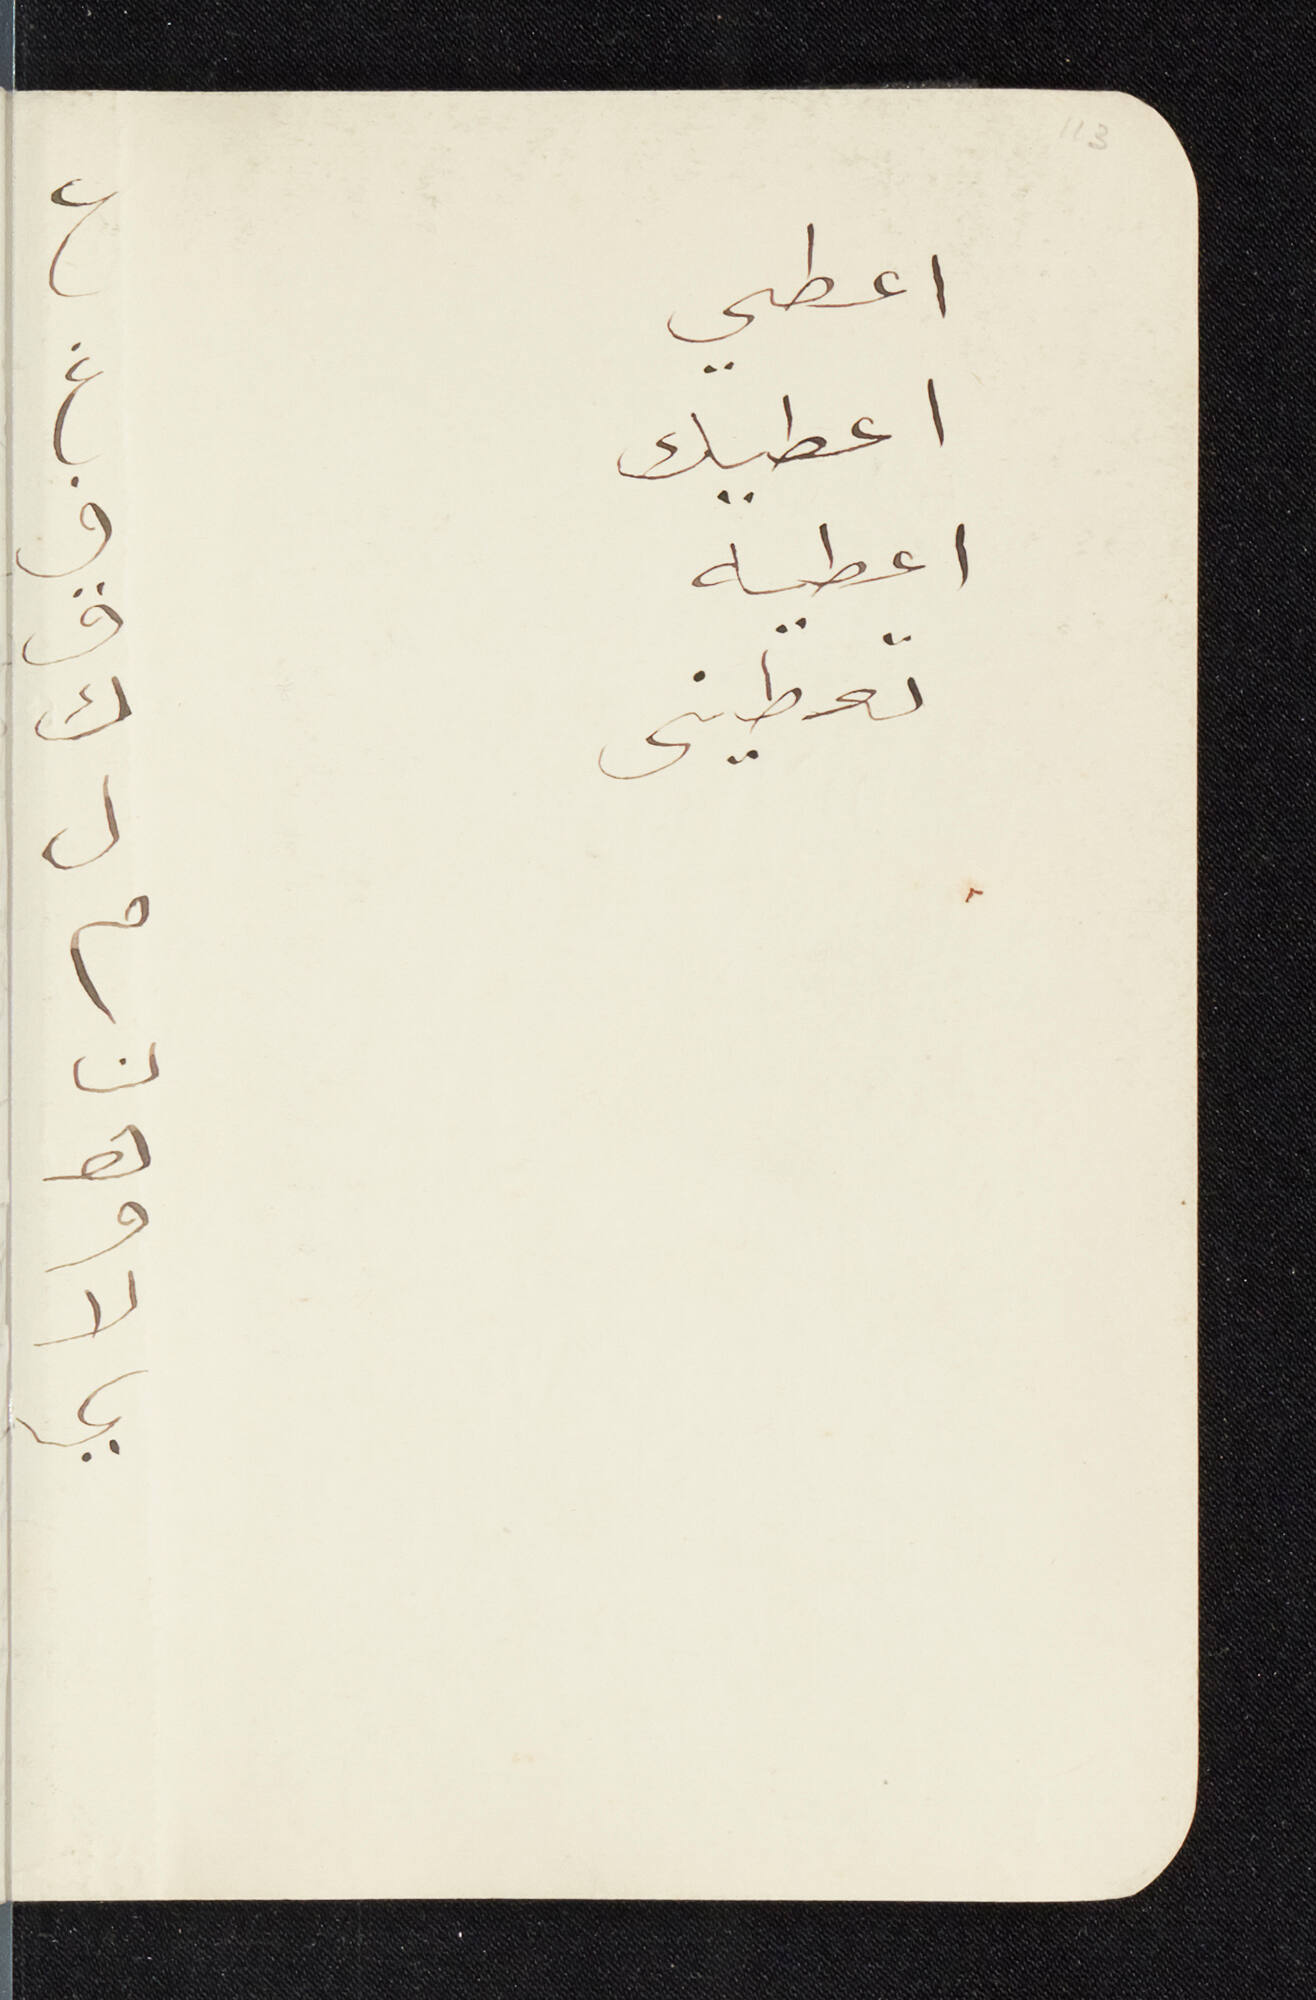 113
اعطي
اعطيك
اعطيه
تعطينى
ع
غ
ف
ق
ك
ل
م
ن
ه
و
لا
ي